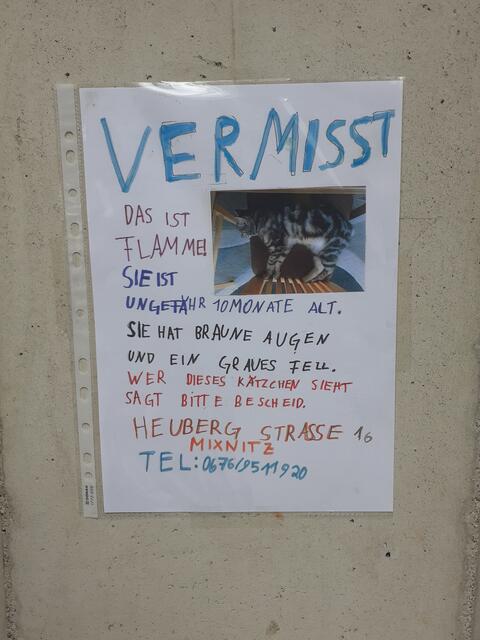 VERMISST
DAS IST
FLAMME!
SIE IST
UNGEFÄHR 10 MONATE ALT.
SIE HAT BRAUNE AUGEN
UND EIN GRAUES FELL.
WER DIESES KÄTZCHEN SIEHT
SAGT BITTE BESCHEID.
HEUBERG STRASSE 16
MIXNITZ
TEL: 0676/9511920